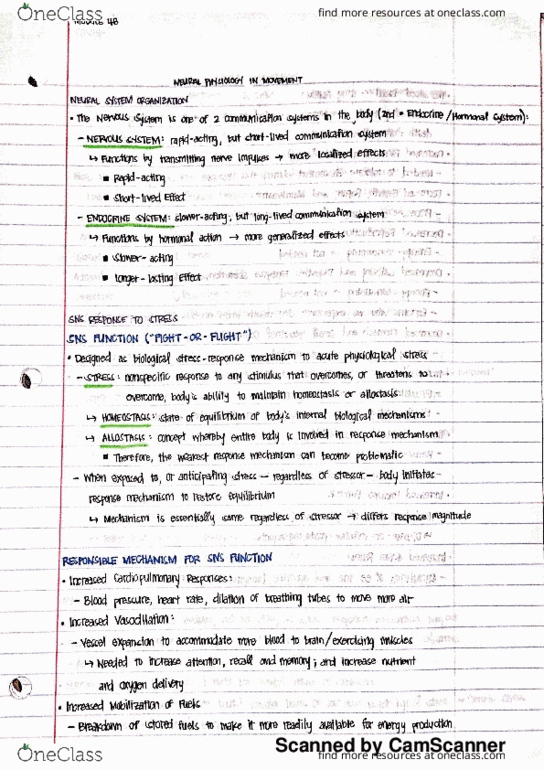 OneClass
find more resources at oneclass.com
MODULE 4B
NEURAL PHYSIOLOGY IN MOVEMENT
NEURAL SYSTEM ORGANIZATION
• The Nervous System is one of 2 communication systems in the body (2nd = Endocrine/Hormonal System):
- NERVOUS SYSTEM: rapid-acting, but short-lived communication system
↳ Functions by transmitting nerve impulses → more localized effects
■ Rapid-acting
■ Short-lived Effect
- ENDOCRINE SYSTEM: slower-acting, but long-lived communication system
↳ Functions by hormonal action → more generalized effects
■ Slower-acting
■ Longer-lasting Effect
SNS RESPONSE TO STRESS
SNS FUNCTION ("FIGHT-OR-FLIGHT")
• Designed as biological stress-response mechanism to acute physiological stress
- STRESS: nonspecific response to any stimulus that overcomes, or threatens to
overcome, body's ability to maintain homeostasis or allostasis
↳ HOMEOSTASIS: state of equilibrium of body's internal biological mechanisms
↳ ALLOSTASIS: concept whereby entire body is involved in response mechanism
■ Therefore, the weakest response mechanism can become problematic
- When exposed to, or anticipating stress - regardless of stressor - body initiates
response mechanism to restore equilibrium
↳ Mechanism is essentially same regardless of stressor → differs response magnitude
RESPONSIBLE MECHANISM FOR SNS FUNCTION
• Increased Cardiopulmonary Responses:
- Blood pressure, heart rate, dilation of breathing tubes to move more air
• Increased Vasodilation:
- Vessel expansion to accommodate more blood to brain/exercising muscles
↳ Needed to increase attention, recall and memory; and increase nutrient
and oxygen delivery
• Increased Mobilization of Fuels
- Breakdown of stored fuels to make it more readily available for energy production
Scanned by CamScanner
OneClass
find more resources at oneclass.com